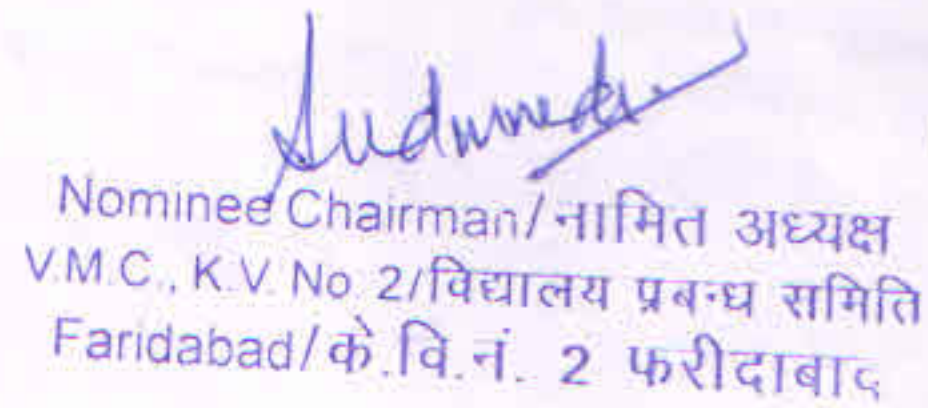 Nominee Chairman/नामित अध्यक्ष
V.M.C., K.V. No. 2/विद्यालय प्रबन्ध समिति
Faridabad/के.वि.नं. 2 फरीदाबाद